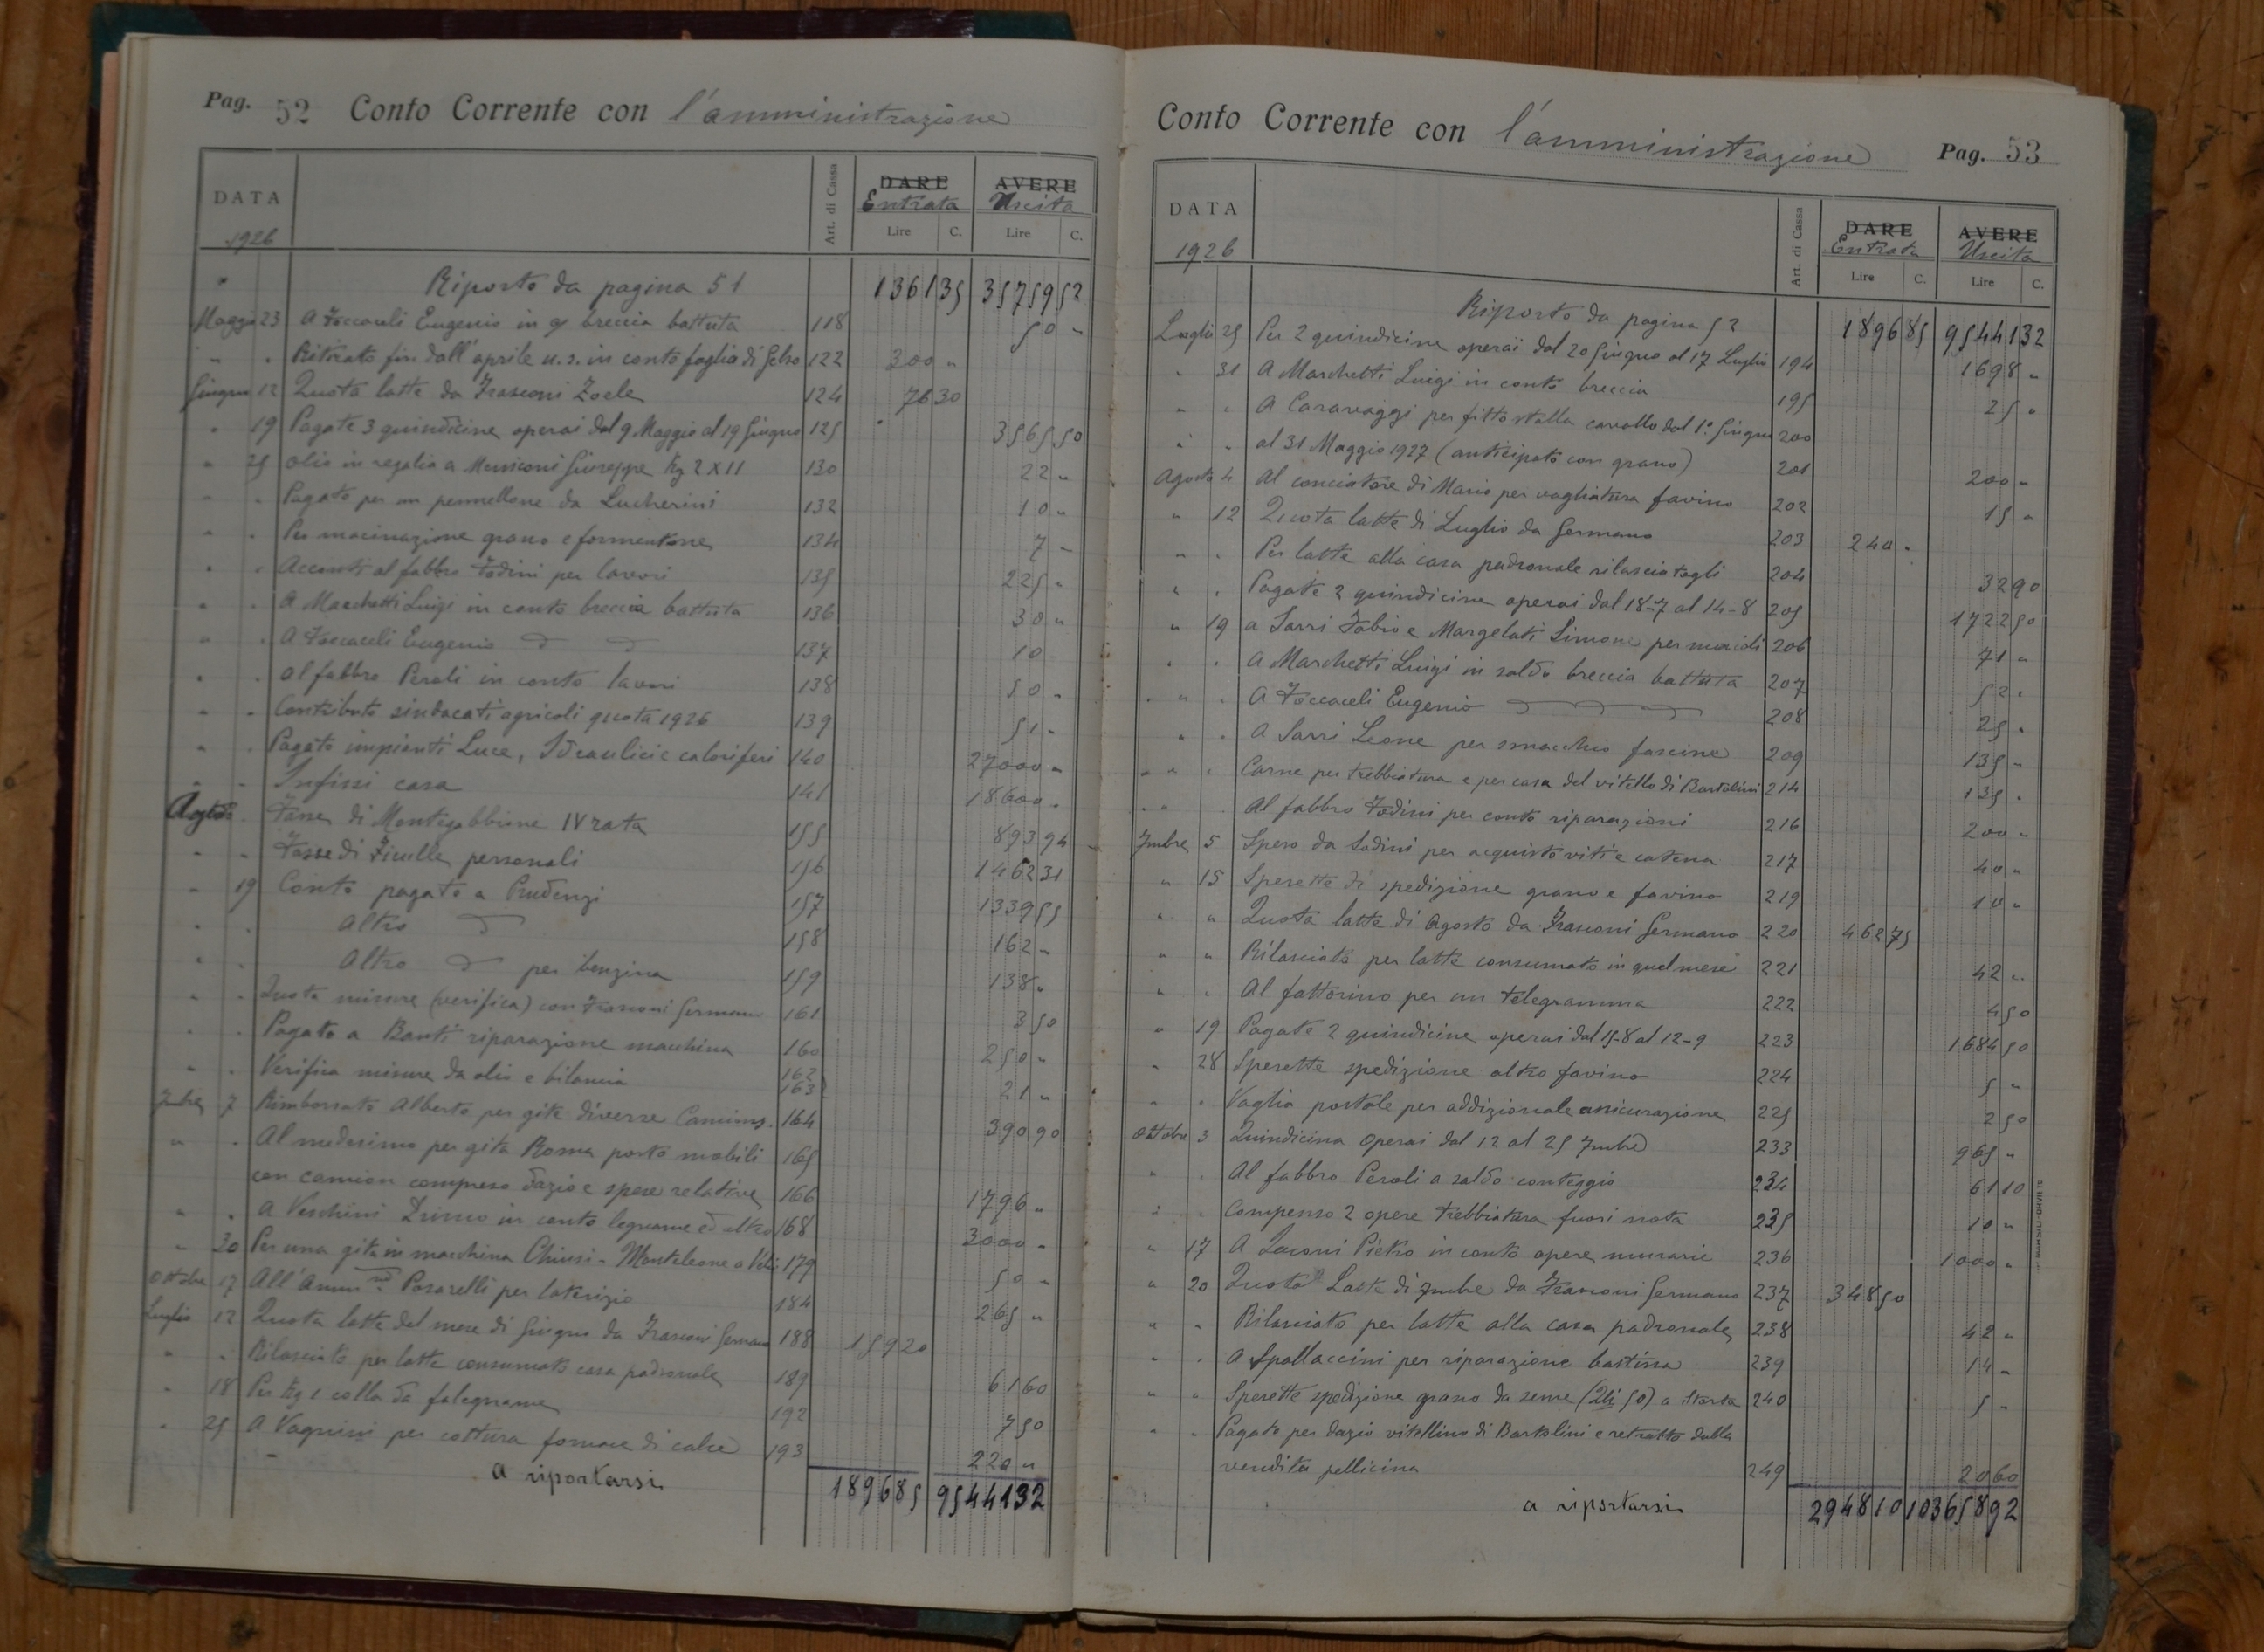 Pag. 52 Conto Corrente con l'amministrazione
DATA Art. di Cassa DARE AVERE
Entrata Uscita
1926 Lire C. Lire C.
" Riporto da pagina 51 1361 35 35759 52
Maggio 23 A Foccaceli Eugenio in breccia battuta 118 50 "
" " Ritirato fin dall'aprile u.s. in conto foglia di Gelso 122 300 "
Giugno 12 Quota latte da Frasconi Zoele 124 76 30
" 19 Pagate 3 quindicine operai dal 9 Maggio al 19 Giugno 125 3565 50
" 25 Olio in regalia a Menniconi Giuseppe Kg 2 x 11 130 22 "
" " Pagato per un pennellone da Lucherini 132 10 "
" " Per macinazione grano e formentone 134 7 "
" " Acconti al fabbro Fodini per lavori 135 225 "
" " A Marchetti Luigi in conto breccia battuta 136 30 "
" " A Foccaceli Eugenio 137 10
" " al fabbro Peroli in conto lavori 138 50 "
" " Contributo sindacati agricoli quota 1926 139 51 "
" " Pagato impianti Luce, Idraulici e caloriferi 140 27000 "
" " Infissi casa 141 18600 "
Agosto " Tasse di Montegabbione IV rata 155 893 94
" " Tasse di Ficulle personali 156 1462 31
" 19 Conto pagato a Prudenzi 157 1339 55
" " Altro 158 162 "
" " Altro per benzina 159 138 "
" " Quota misure (verifica) con Frasconi Germano 161 3 50
" " Pagato a Banti riparazione macchina 160 250 "
" " Verifica misure da olio e bilancia 162 163 21 "
7mbre 7 Rimborsato Alberto per gite diverse Camions. 164 390 90
" " Al medesimo per gita Roma porto mobili 165
con camion compreso dazio e spese relative 166 1796 "
" " A Veschini in conto legname ed altro 168 3000 "
" 30 Per una gita in macchina Chiusi - Monteleone 179 50 "
Ottobre 17 All'Amm.ne Posarelli per laterizio 184 265 "
Luglio 12 Quota latte del mese di Giugno da Frasconi Germano 188 159 20
" " Rilasciato per latte consumato casa padronale 189 61 60
" 18 Per Kg 1 colla da falegname 192 7 50
" 25 A Vagnini per cottura fornace di calce 193 220 "
a riportarsi 1896 85 95441 32
Conto Corrente con l'amministrazione Pag. 53
DATA Art. di Cassa DARE AVERE
Entrata Uscita
1926 Lire C. Lire C.
Riporto da pagina 52 1896 85 95441 32
Luglio 25 Per 2 quindicine operai dal 20 Giugno al 17 Luglio 194 1698 "
" 31 A Marchetti Luigi in conto breccia 195 25 "
" " A Caravaggi per fitto stalla cavallo dal 1° Giugno 200
" " al 31 Maggio 1927 (anticipato con grano) 201 200 "
Agosto 4 Al conciatore di Mario per vagliatura favino 202 15 "
" 12 Quota latte di Luglio da Germano 203 240 "
" " Per latte alla casa padronale rilasciatogli 204 32 90
" " Pagate 2 quindicine operai dal 18-7 al 14-8 205 1722 50
" 19 a Sarri Fabio e Margelati Simone per 206 71 "
" " A Marchetti Luigi in saldo breccia battuta 207 52 "
" " A Foccaceli Eugenio 208 25 "
" " A Sarri Leone per smacchio fascine 209 135 "
" " Carne per trebbiatura e per casa del vitello di Bartolini 214 135 "
" " Al fabbro Fodini per conto riparazioni 216 200 "
7mbre 5 Speso da Sadini per acquisto viti e catena 217 40 "
" 15 Spesette di spedizione grano e favino 219 10 "
" " Quota latte di Agosto da Frasconi Germano 220 462 75
" " Rilasciata per latte consumato in quel mese 221 42 "
" " Al fattorino per un telegramma 222 4 50
" 19 Pagate 2 quindicine operai dal 15-8 al 12-9 223 1684 50
" 28 Spesette spedizione altro favino 224 5 "
" " Vaglia postale per addizionale assicurazione 225 2 50
Ottobre 3 Quindicina operai dal 12 al 25 7mbre 233 965 "
" " Al fabbro Peroli a saldo conteggio 234 61 10
" " Compenso 2 opere trebbiatura fuori nota 235 10 "
" 17 A Jaconi Pietro in conto opere murarie 236 1000 "
" 20 Quota Latte di 7mbre da Frasconi Germano 237 348 50
" " Rilasciato per latte alla casa padronale 238 42 "
" " A Spallaccini per riparazione bastina 239 14 "
" " Spesette spedizione grano da seme (2li 50) a 240 5 "
" " Pagato per dazio vitellino di Bartolini e retratto dalla
vendita pellicina 249 20 60
a riportarsi 2948 10 103658 92